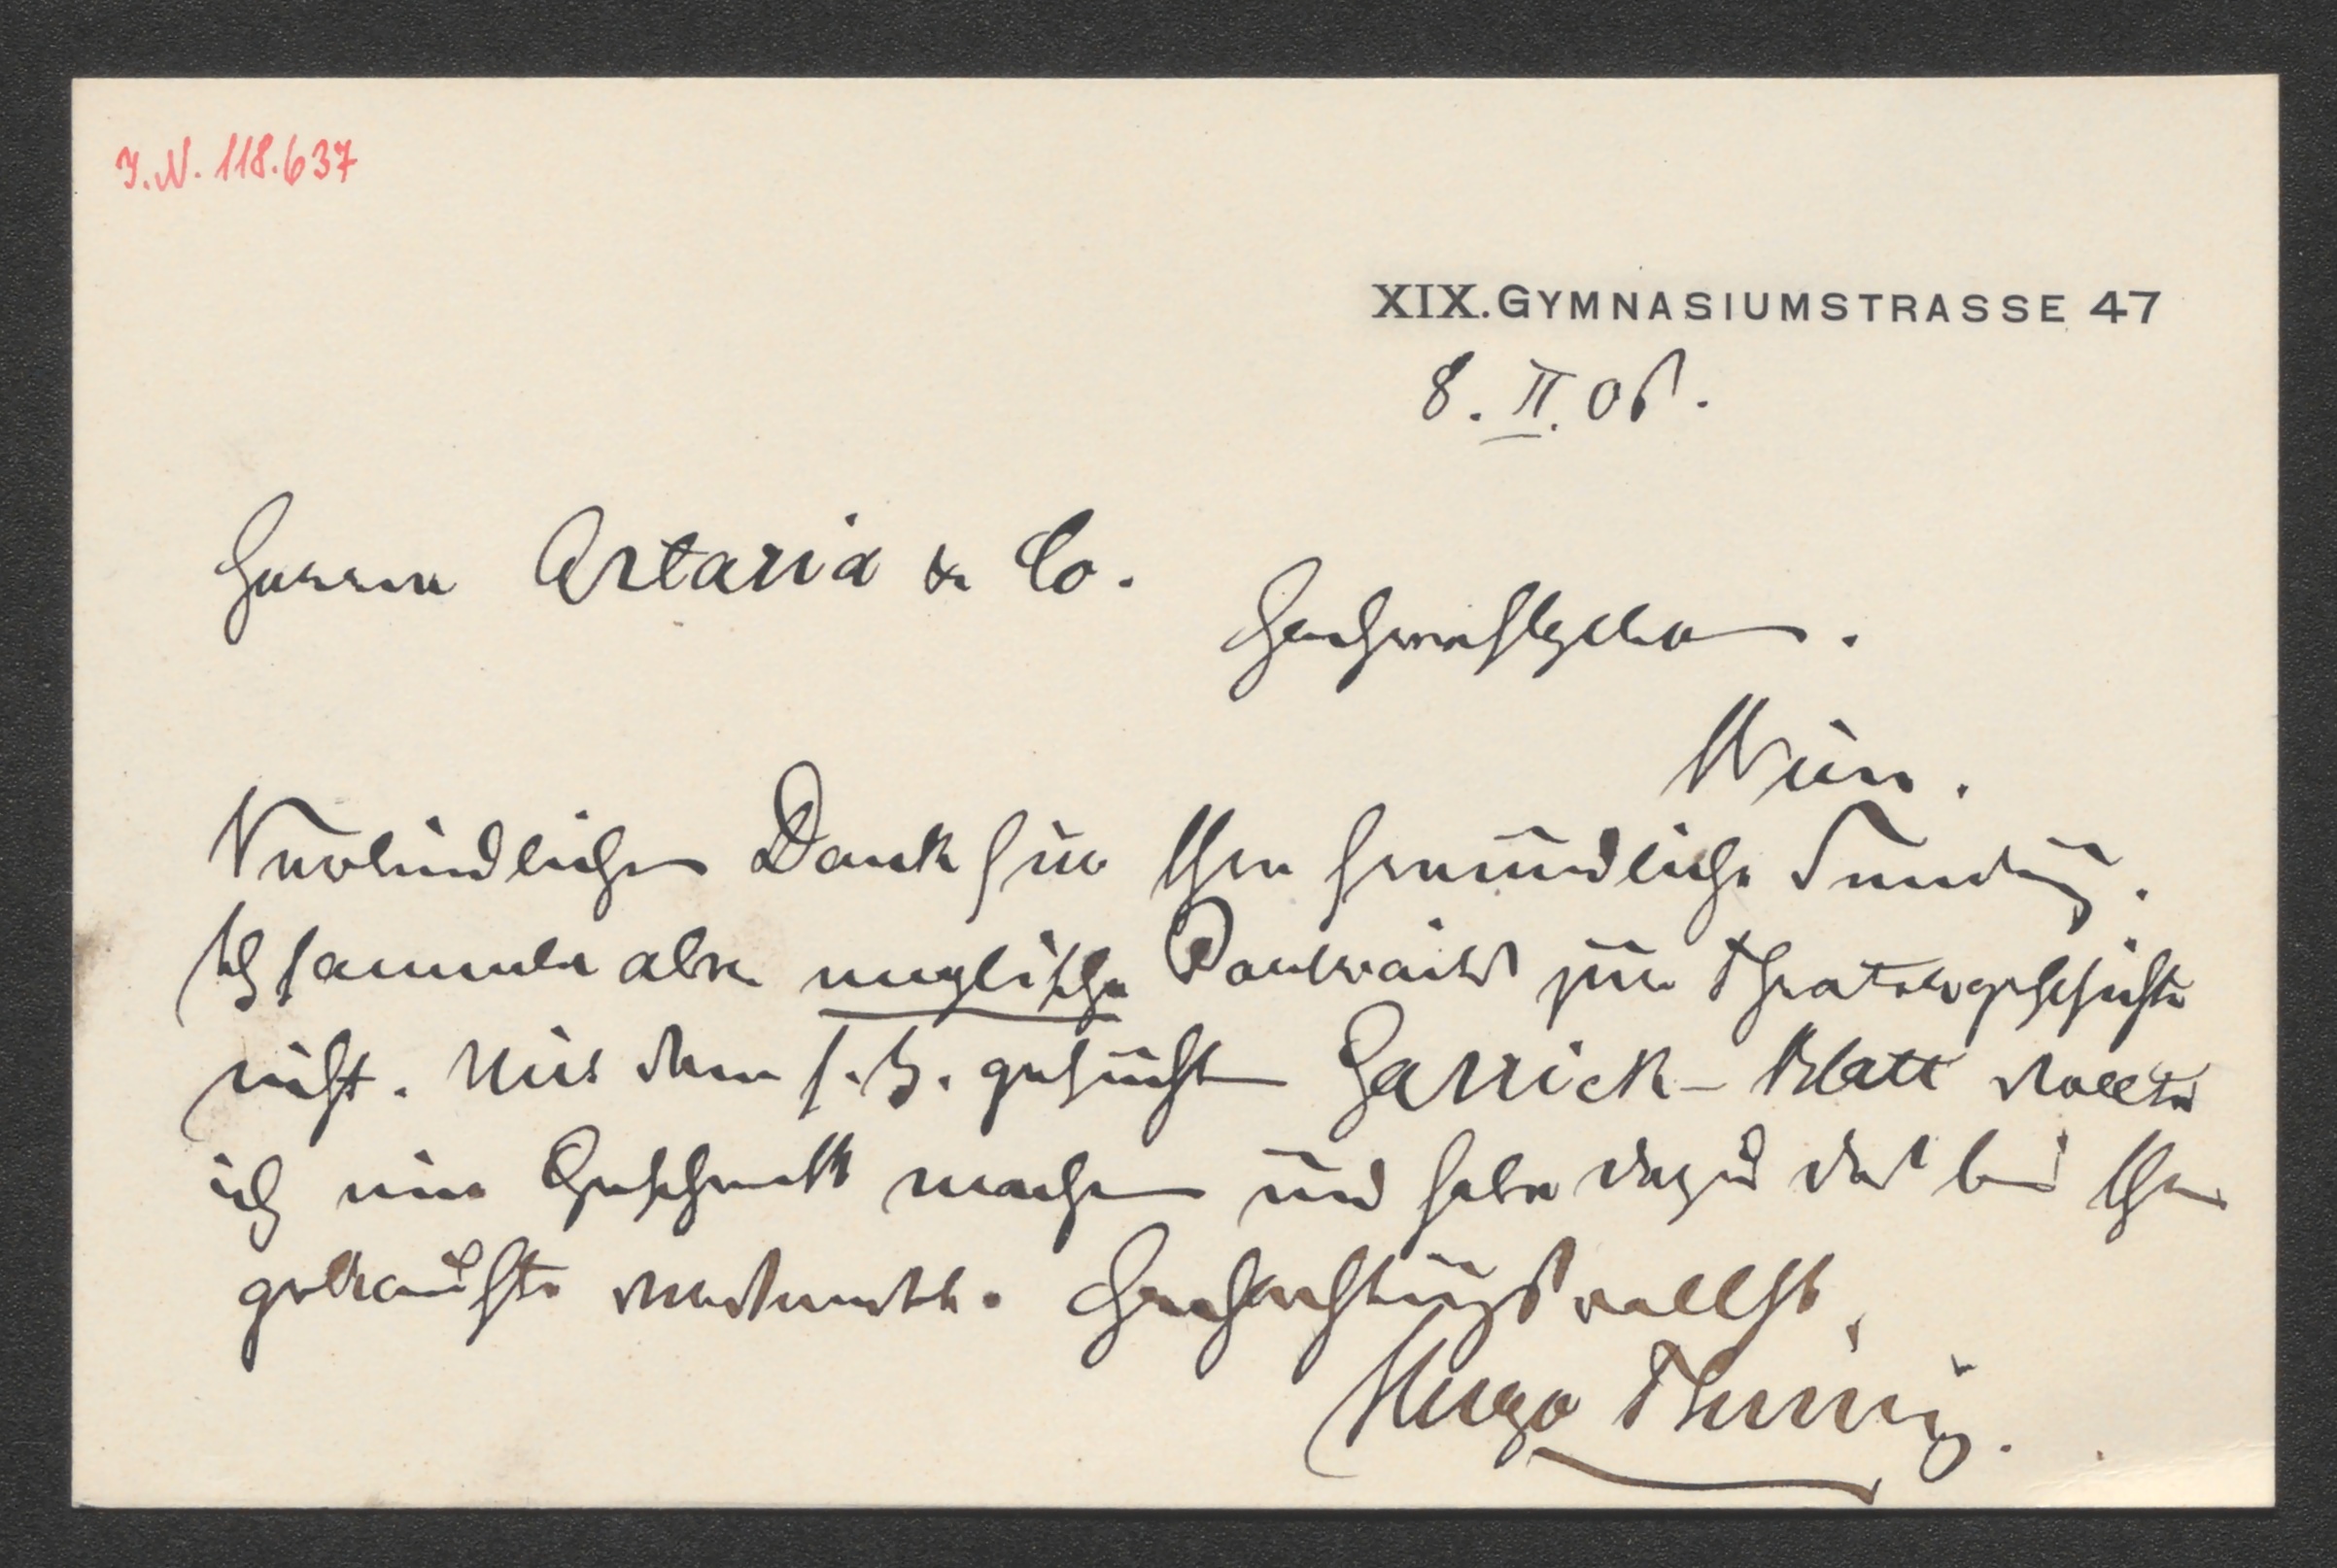 I.N. 118.637
XIX. GYMNASIUMSTRASSE 47
8. II. 06.
Herren Artaria & Co.
Hochwohlgeboren.
Wien.
Verbindlichen Dank für Ihre freundliche Sendung.
Ich sammle aber englische Porträts zur Theatergeschichte
nicht. Mit dem s. Z. gesuchten Garrick-Blatt wollte
ich ein Geschenk machen und habe dazu das bei Ihnen
gekaufte verwendet. Hochachtungsvollst,
Hugo Thimig.